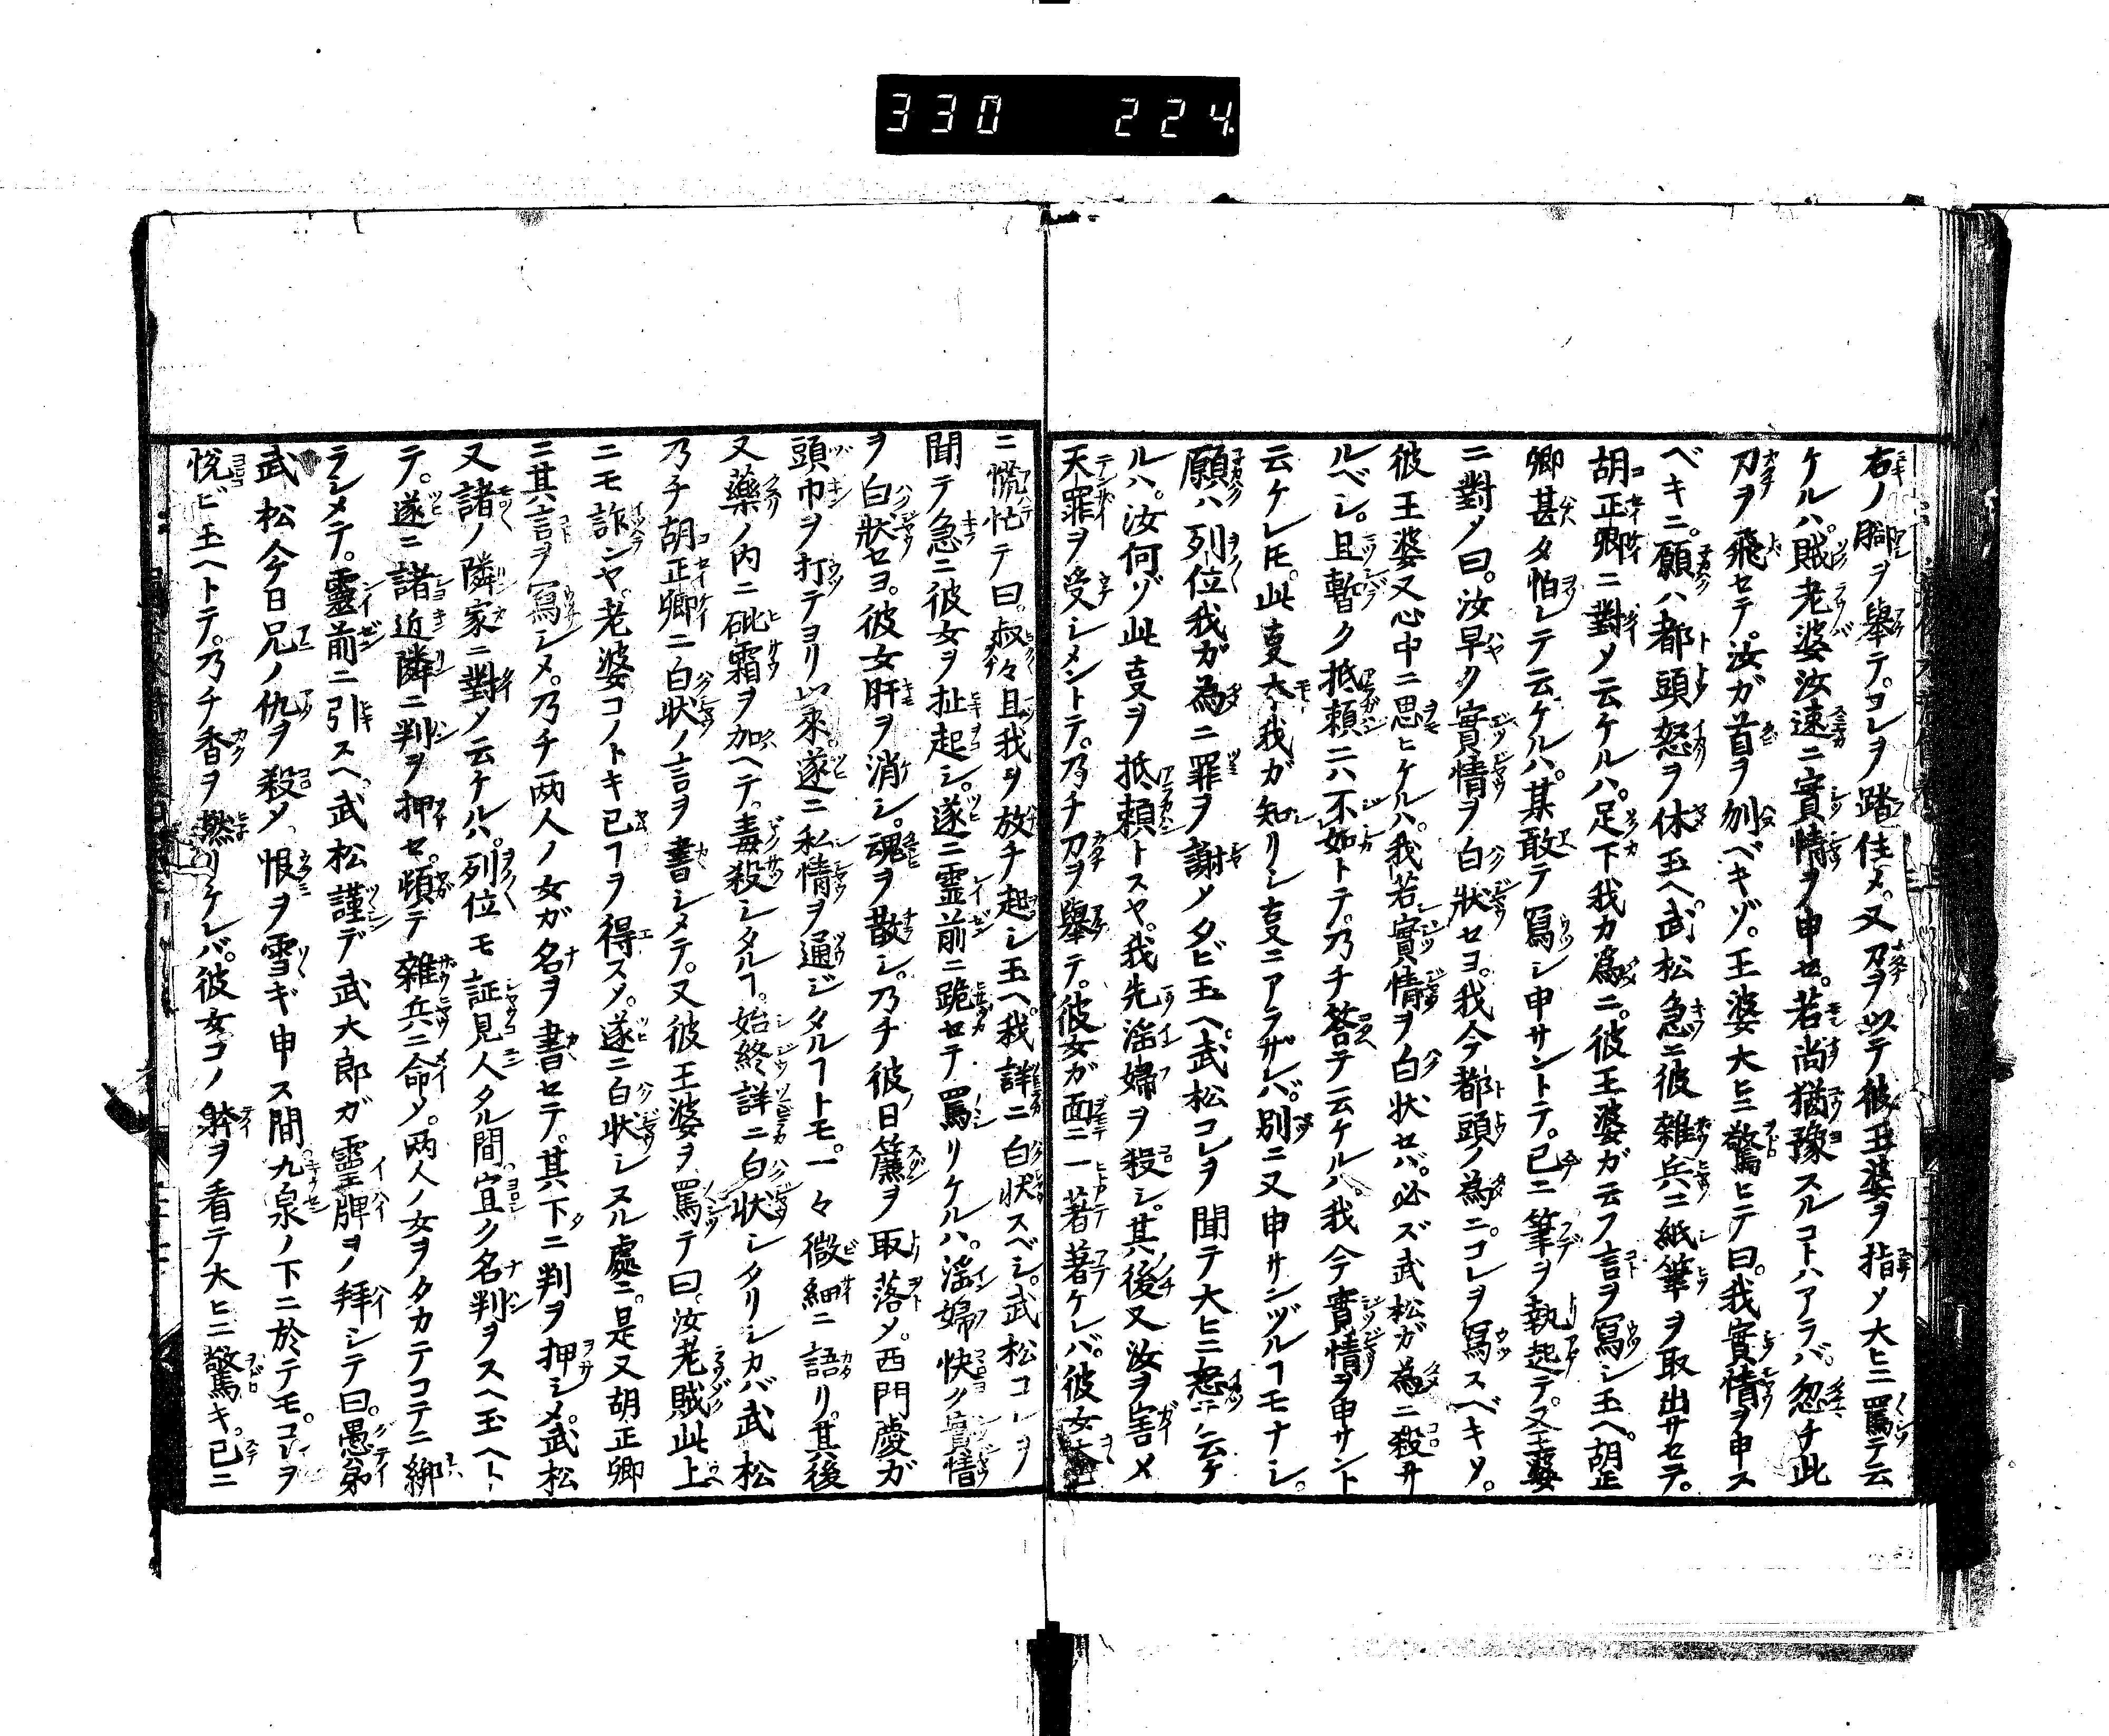 330 224
右ノ脚ヲ擧テ。コレヲ踏住メ。又刀ヲ以テ彼王婆ヲ指〆大ヒニ罵テ云
ケルハ。賊老婆汝速ニ實情ヲ申セ。若尚猶豫スルコトハアラバ。忽チ此
刀ヲ飛セテ。汝ガ首ヲ刎ベキゾ。王婆大ヒニ驚ヒテ曰。我實情ヲ申ス
ベキニ。願ハ都頭怒ヲ休玉ヘ。武松急ニ彼雜兵ニ紙筆ヲ取出サセテ。
胡正卿ニ對〆云ケルハ。足下我カ爲ニ。彼王婆ガ云フ言ヲ寫シ玉ヘ。胡正
卿甚タ怕レテ云ケルハ。某敢テ寫シ申サントテ。已ニ筆ヲ執起テ。又王婆
ニ對〆曰。汝早ク實情ヲ白狀セヨ。我今都頭ノ爲ニ。コレヲ寫スベキソ。
彼王婆又心中ニ思ヒケルハ。我若實情ヲ白状セバ。必ズ武松ガ爲ニ殺サ
ルベシ。且暫ク抵賴ニハ不如トテ。乃チ答テ云ケルハ。我今實情ヲ申サント
云ケレ𪜈。此叓太我ガ知リシ叓ニアラザレバ。別ニ又申サンヅルヿモナシ。
願ハ列位我ガ為ニ罪ヲ謝〆タビ玉ヘ。武松コレヲ聞テ大ヒニ怒テ云ケ
ルハ。汝何ゾ此叓ヲ抵賴トスヤ。我先淫婦ヲ殺シ。其後又汝ヲ害〆
天罪ヲ受シメントテ。乃チ刀ヲ擧テ。彼女ガ面ニ一著著ケレバ。彼女大
ニ慌忙テ曰。叔々且我ヲ放チ起シ玉ヘ。我詳ニ白状スベシ。武松コレヲ
聞テ急ニ彼女ヲ扯起シ。遂ニ霊前ニ跪セテ罵リケルハ。淫婦快ク實情
ヲ白狀セヨ。彼女肝ヲ消シ。魂ヲ散シ。乃チ彼日簾ヲ取落〆。西門慶ガ
頭巾ヲ打テヨリ以來。遂ニ私情ヲ通ジタルヿトモ。一々微細ニ語リ。其後
又藥ノ内ニ砒霜ヲ加ヘテ。毒殺シタルヿ。始終詳ニ白状シタリシカバ武松
乃チ胡正卿ニ白状ノ言ヲ書シメテ。又彼王婆ヲ罵テ曰。汝老賊此上
ニモ詐ンヤ。老婆コノトキ已ヿヲ得ス〆。遂ニ白状シスル處ニ。是又胡正卿
ニ其言ヲ寫シメ。乃チ両人ノ女ガ名ヲ書セテ。其下ニ判ヲ押シメ。武松
又諸ノ隣家ニ對〆云ケルハ。列位モ証見人タル間宜ク名判ヲスヘ玉ヘト
テ。遂ニ諸近隣ニ判ヲ押セ。頓テ雜兵ニ命〆。両人ノ女ヲタカテコテニ綁
ラシメテ。靈前ニ引スヘ。武松謹デ武大郎ガ靈牌ヲ拜シテ曰。愚弟
武松今日兄ノ仇ヲ殺〆。恨ヲ雪ギ申ス間九泉ノ下ニ於テモ。コレヲ
悦ビ玉ヘトテ。乃チ香ヲ撚リケレバ。彼女コノ躰ヲ看テ大ヒニ驚キ。已ニ